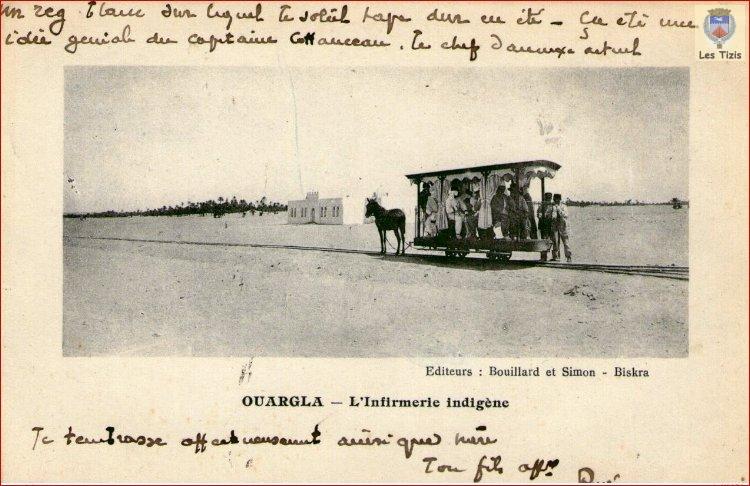 un reg blanc sur lequel le soleil tape dur en été - Ça été une
idée géniale du capitaine . le chef d'annexe actuel
Les Tizis
Editeurs : Bouillard et Simon - Biskra
OUARGLA — L'Infirmerie indigène
Je t'embrasse affectueusement ainsi que mère
Ton fils aff